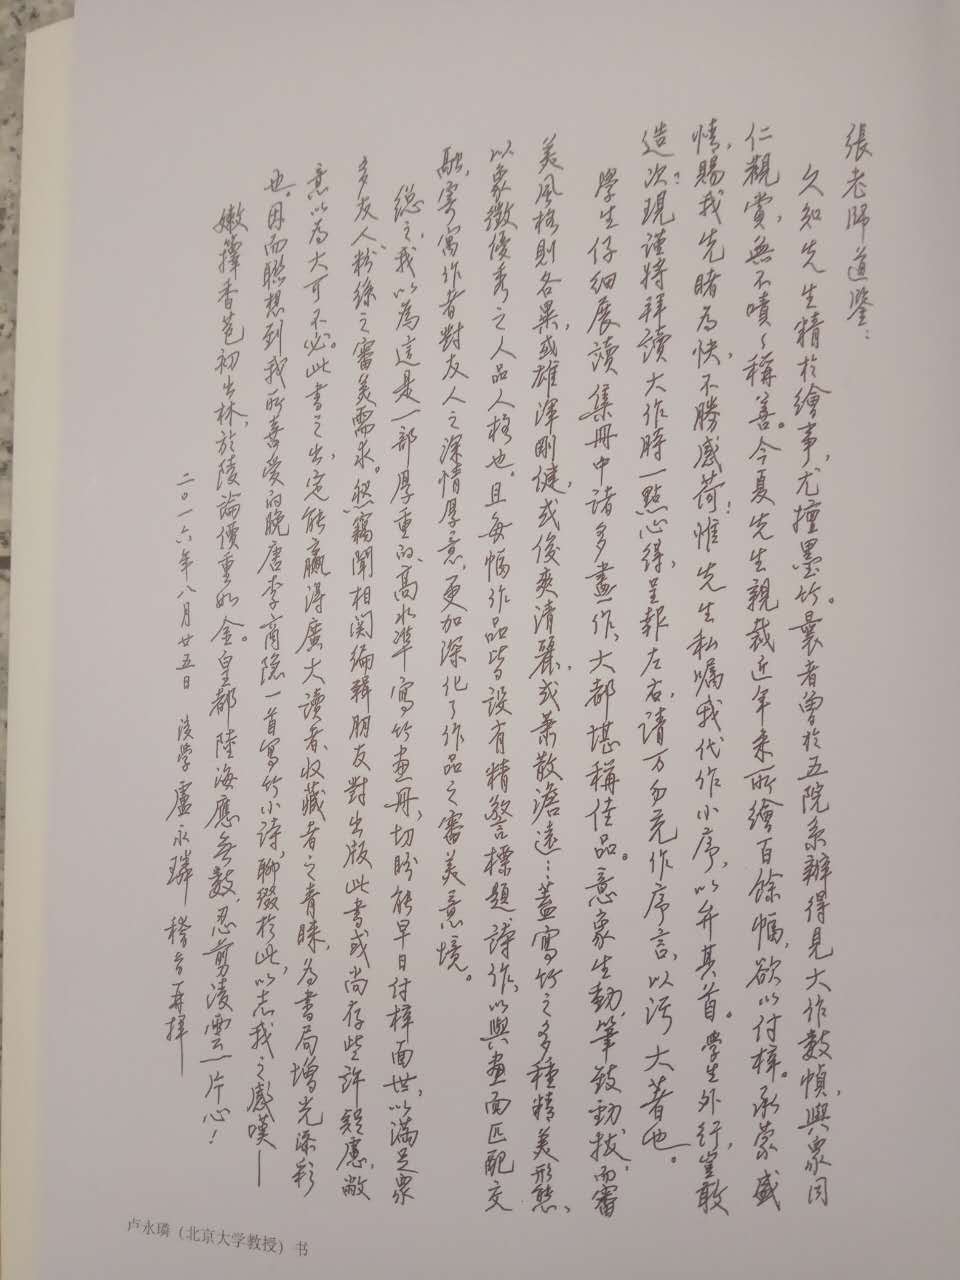 張老師道鑒：
久知先生精於繪事，尤擅墨竹。曩者曾於五院系辦得見大作數幀，與眾同
仁觀賞，無不嘖々稱善。今夏先生親裁近年來所繪百餘幅，欲以付梓。承蒙盛
情，賜我先睹為快，不勝感荷！惟先生私囑我代作小序，以弁其首。學生外行，豈敢
造次？現謹將拜讀大作時一點心得，呈報左右，請万勿充作序言，以污大著也。
學生仔細展讀集冊中諸多畫作，大都堪稱佳品。意象生動，筆致勁拔，而審
美風格則各異，或雄渾剛健，或俊爽清麗，或蕭散澹遠…蓋寫竹之多種精美形態，
以象徵優秀之人品人格也。且每幅作品皆設有精警標題、詩作，以與畫面匹配交
融，寄寓作者對友人之深情厚意，更加深化了作品之審美意境。
總之，我以為這是一部厚重的、高水準寫竹畫冊，切盼能早日付梓面世，以滿足眾
多友人、粉絲之審美需求。然竊聞相関編輯朋友對出版此書或尚存些許疑慮，敝
意以為大可不必。此書之出，定能贏得廣大讀者、收藏者之青睞，為書局增光添彩
也。因而聯想到我所喜愛的晚唐李商隐一首寫竹小詩，聊綴於此，以志我之感嘆——
嫩籜香苞初出林，於陵論價重如金。皇都陸海應無數，忍剪凌雲一片心！
二〇一六年八月廿五日 後學盧永璘稽首再拜——
卢永璘（北京大学教授）书